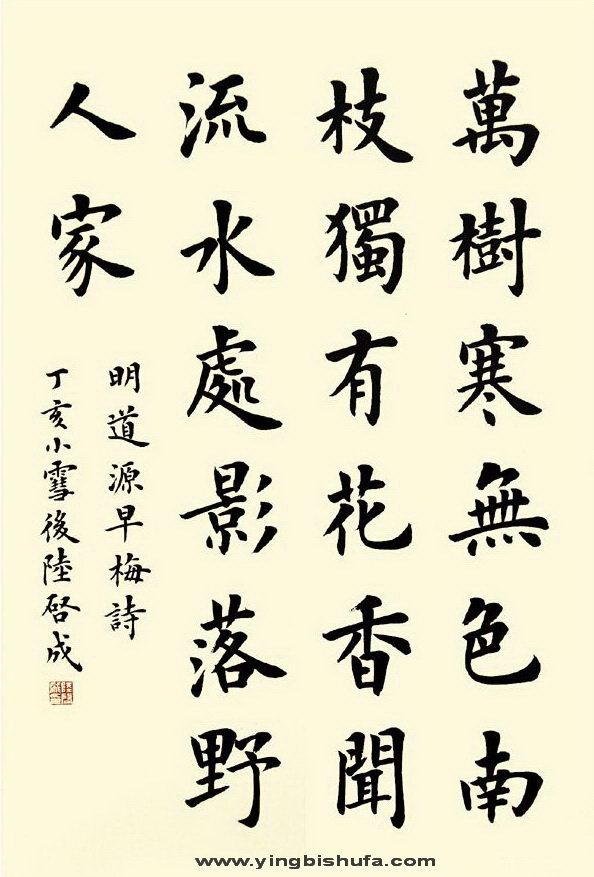 萬樹寒無色南
枝獨有花香聞
流水處影落野
人家
明道源早梅詩
丁亥小雪後陸啓成
www.yingbishufa.com